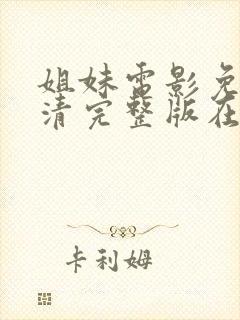 姐妹电影免
清完整版在
卡利姆